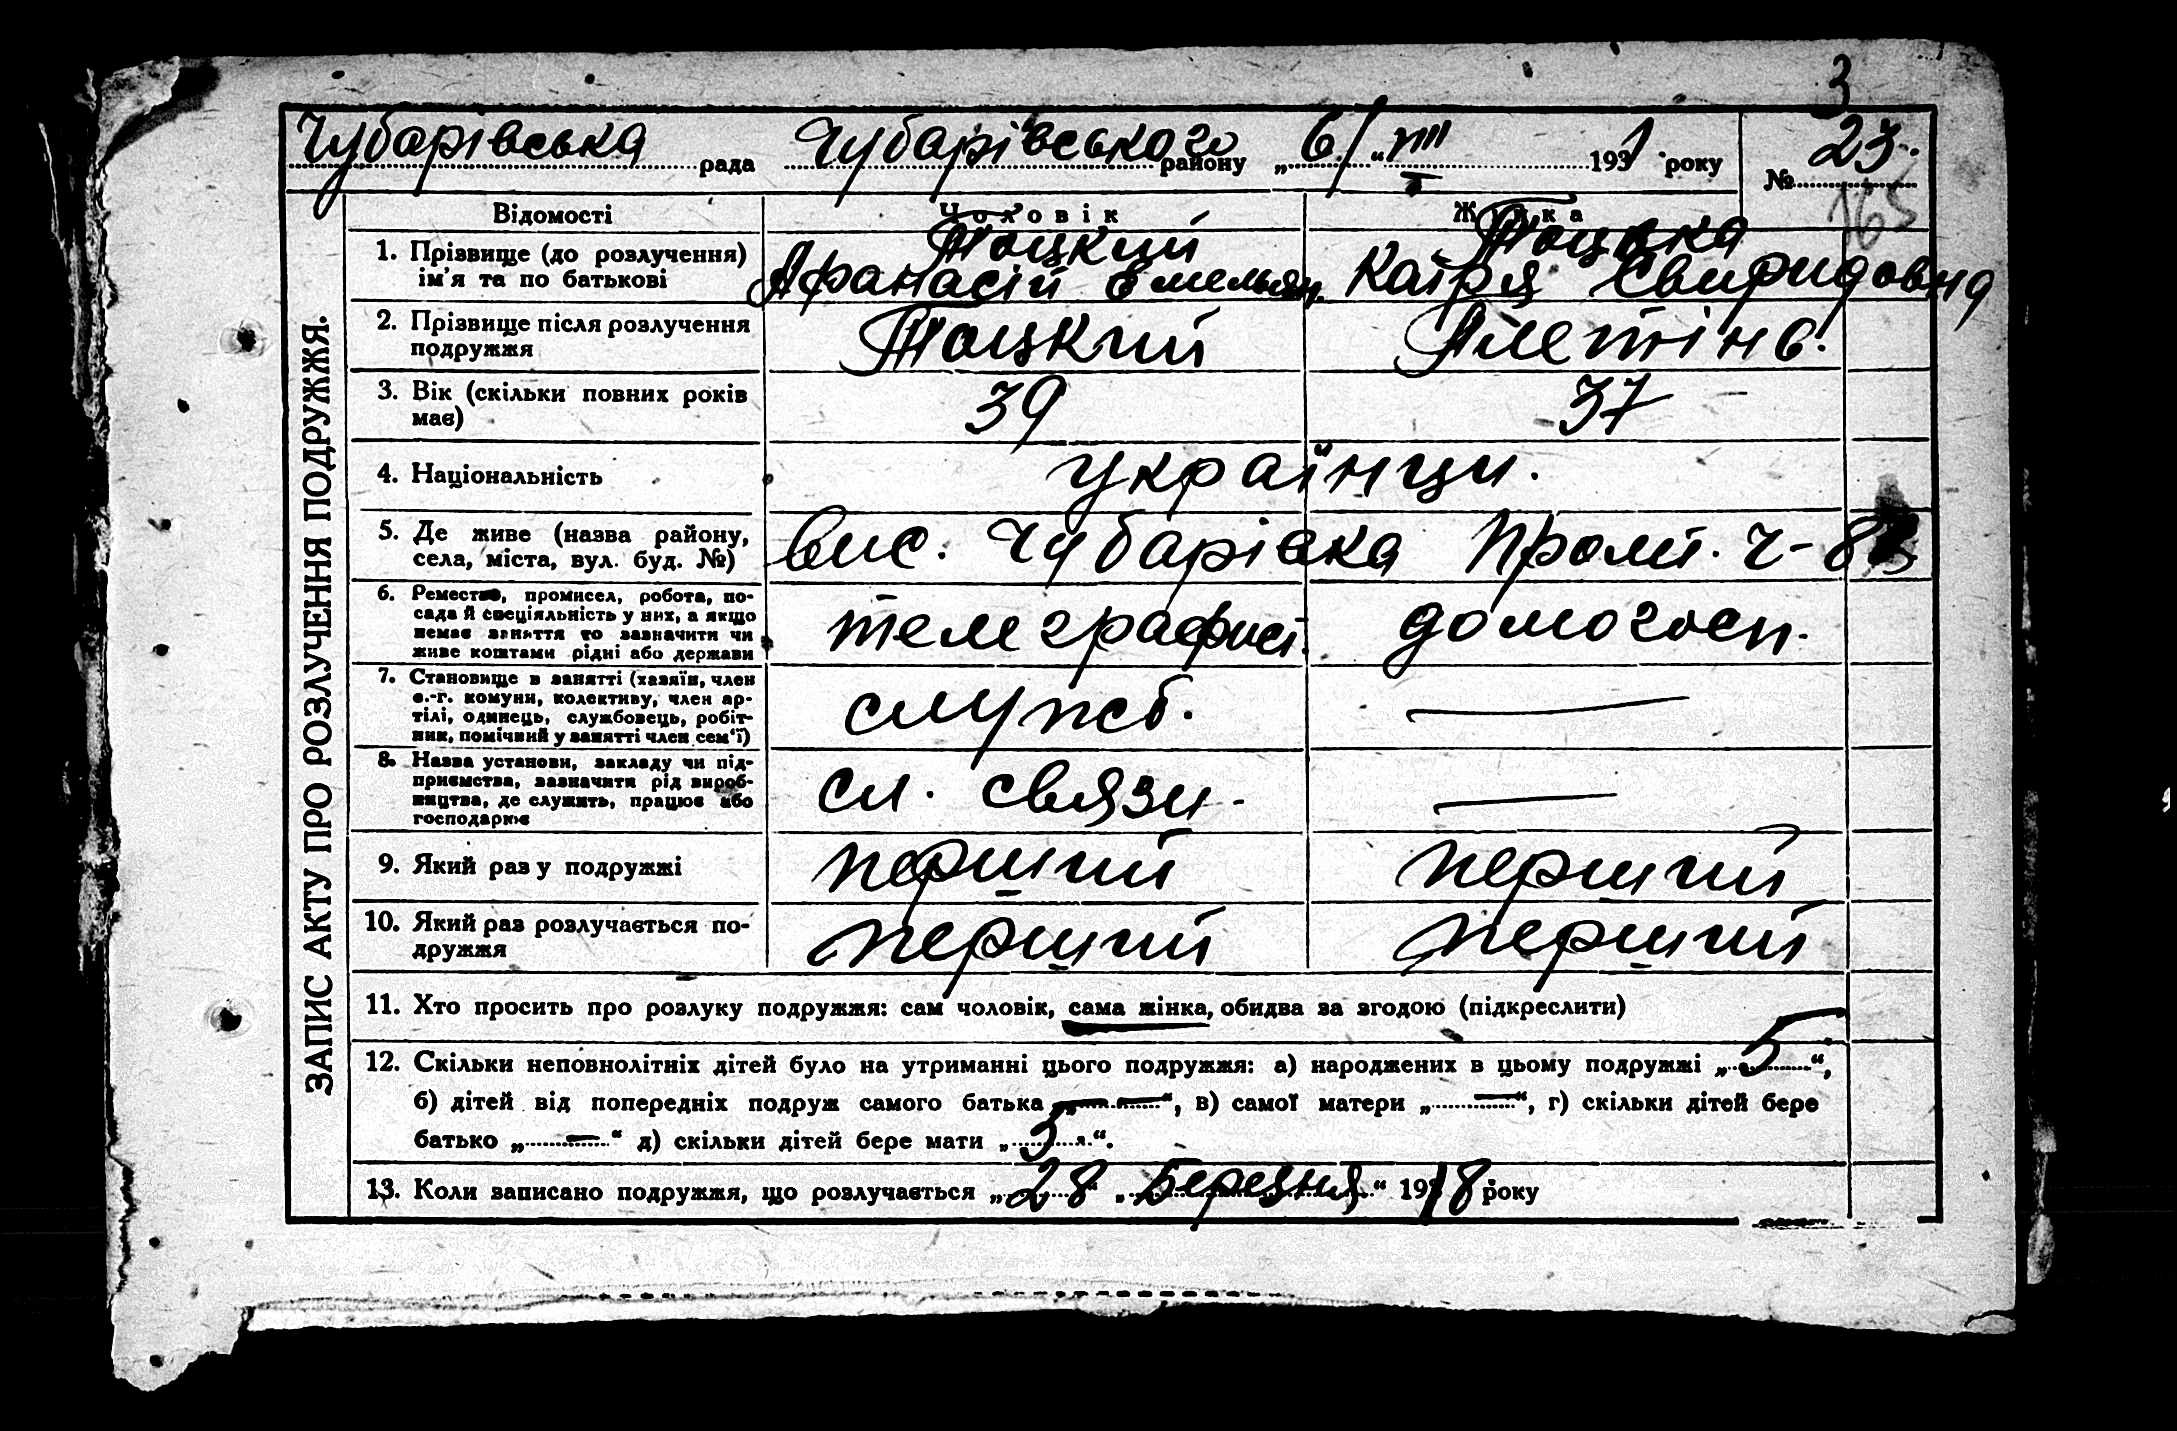 3
Чубарівська рада Чубарівського району „ 6/ “ VIII 1931 року № 23.
165
ЗАПИС АКТУ ПРО РОЗЛУЧЕННЯ ПОДРУЖЖЯ.
Відомості Чоловік Жінка
1. Прізвище (до розлучення) Тоцкий Тоцька
ім'я та по батькові Афанасій Емельян. Катря Свиридовна
2. Прізвище після розлучення Тоцкий
подружжя
3. Вік (скільки повних років 39 37
має)
4. Національність українци.
5. Де живе (назва району, вис. Чубарівка Пролт. ч-8
села, міста, вул. буд. №)
6. Ремество, промисел, робота, по-
сада й спеціяльність у них, а якщо телеграфист. домогосп.
немає заняття то зазначити чи
живе коштами рідні або держави
7. Становище в занятті (хазяїн, член
с.-г. комуни, колективу, член ар- служб. —
тілі, одинець, службовець, робіт-
ник, помічний у занятті член сем'ї)
8. Назва установи, закладу чи під-
приємства, зазначити рід вироб- сл. связи. —
ництва, де служить, працює або
господарює
9. Який раз у подружжі перший перший
10. Який раз розлучається по- перший перший
дружжя
11. Хто просить про розлуку подружжя: сам чоловік, сама жінка, обидва за згодою (підкреслити)
12. Скільки неповнолітніх дітей було на утриманні цього подружжя: а) народжених в цьому подружжі „ 5 “,
б) дітей від попередніх подруж самого батька „ — “, в) самої матери „ — “, г) скільки дітей бере
батько „ — “ д) скільки дітей бере мати „ 5 “.
13. Коли записано подружжя, що розлучається „ 28 “ „ Березня “ 1918 року